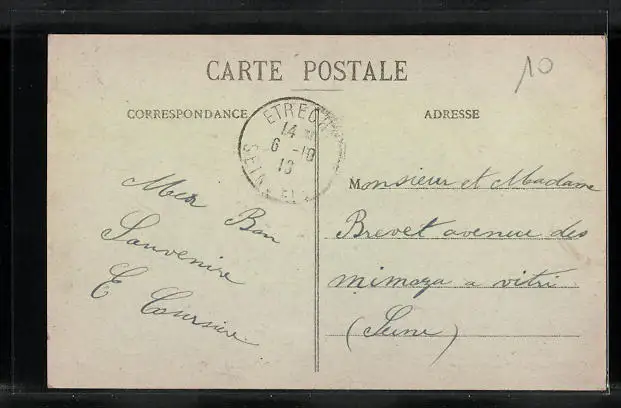 10
CARTE POSTALE
CORRESPONDANCE
ETRECH
14
6 -10
10
SEINE ET
ADRESSE
Mes Bon
Souvenire
E Coursier
Monsieur et Madame
Brevet avenue des
mimoza a vitri
(Seine)